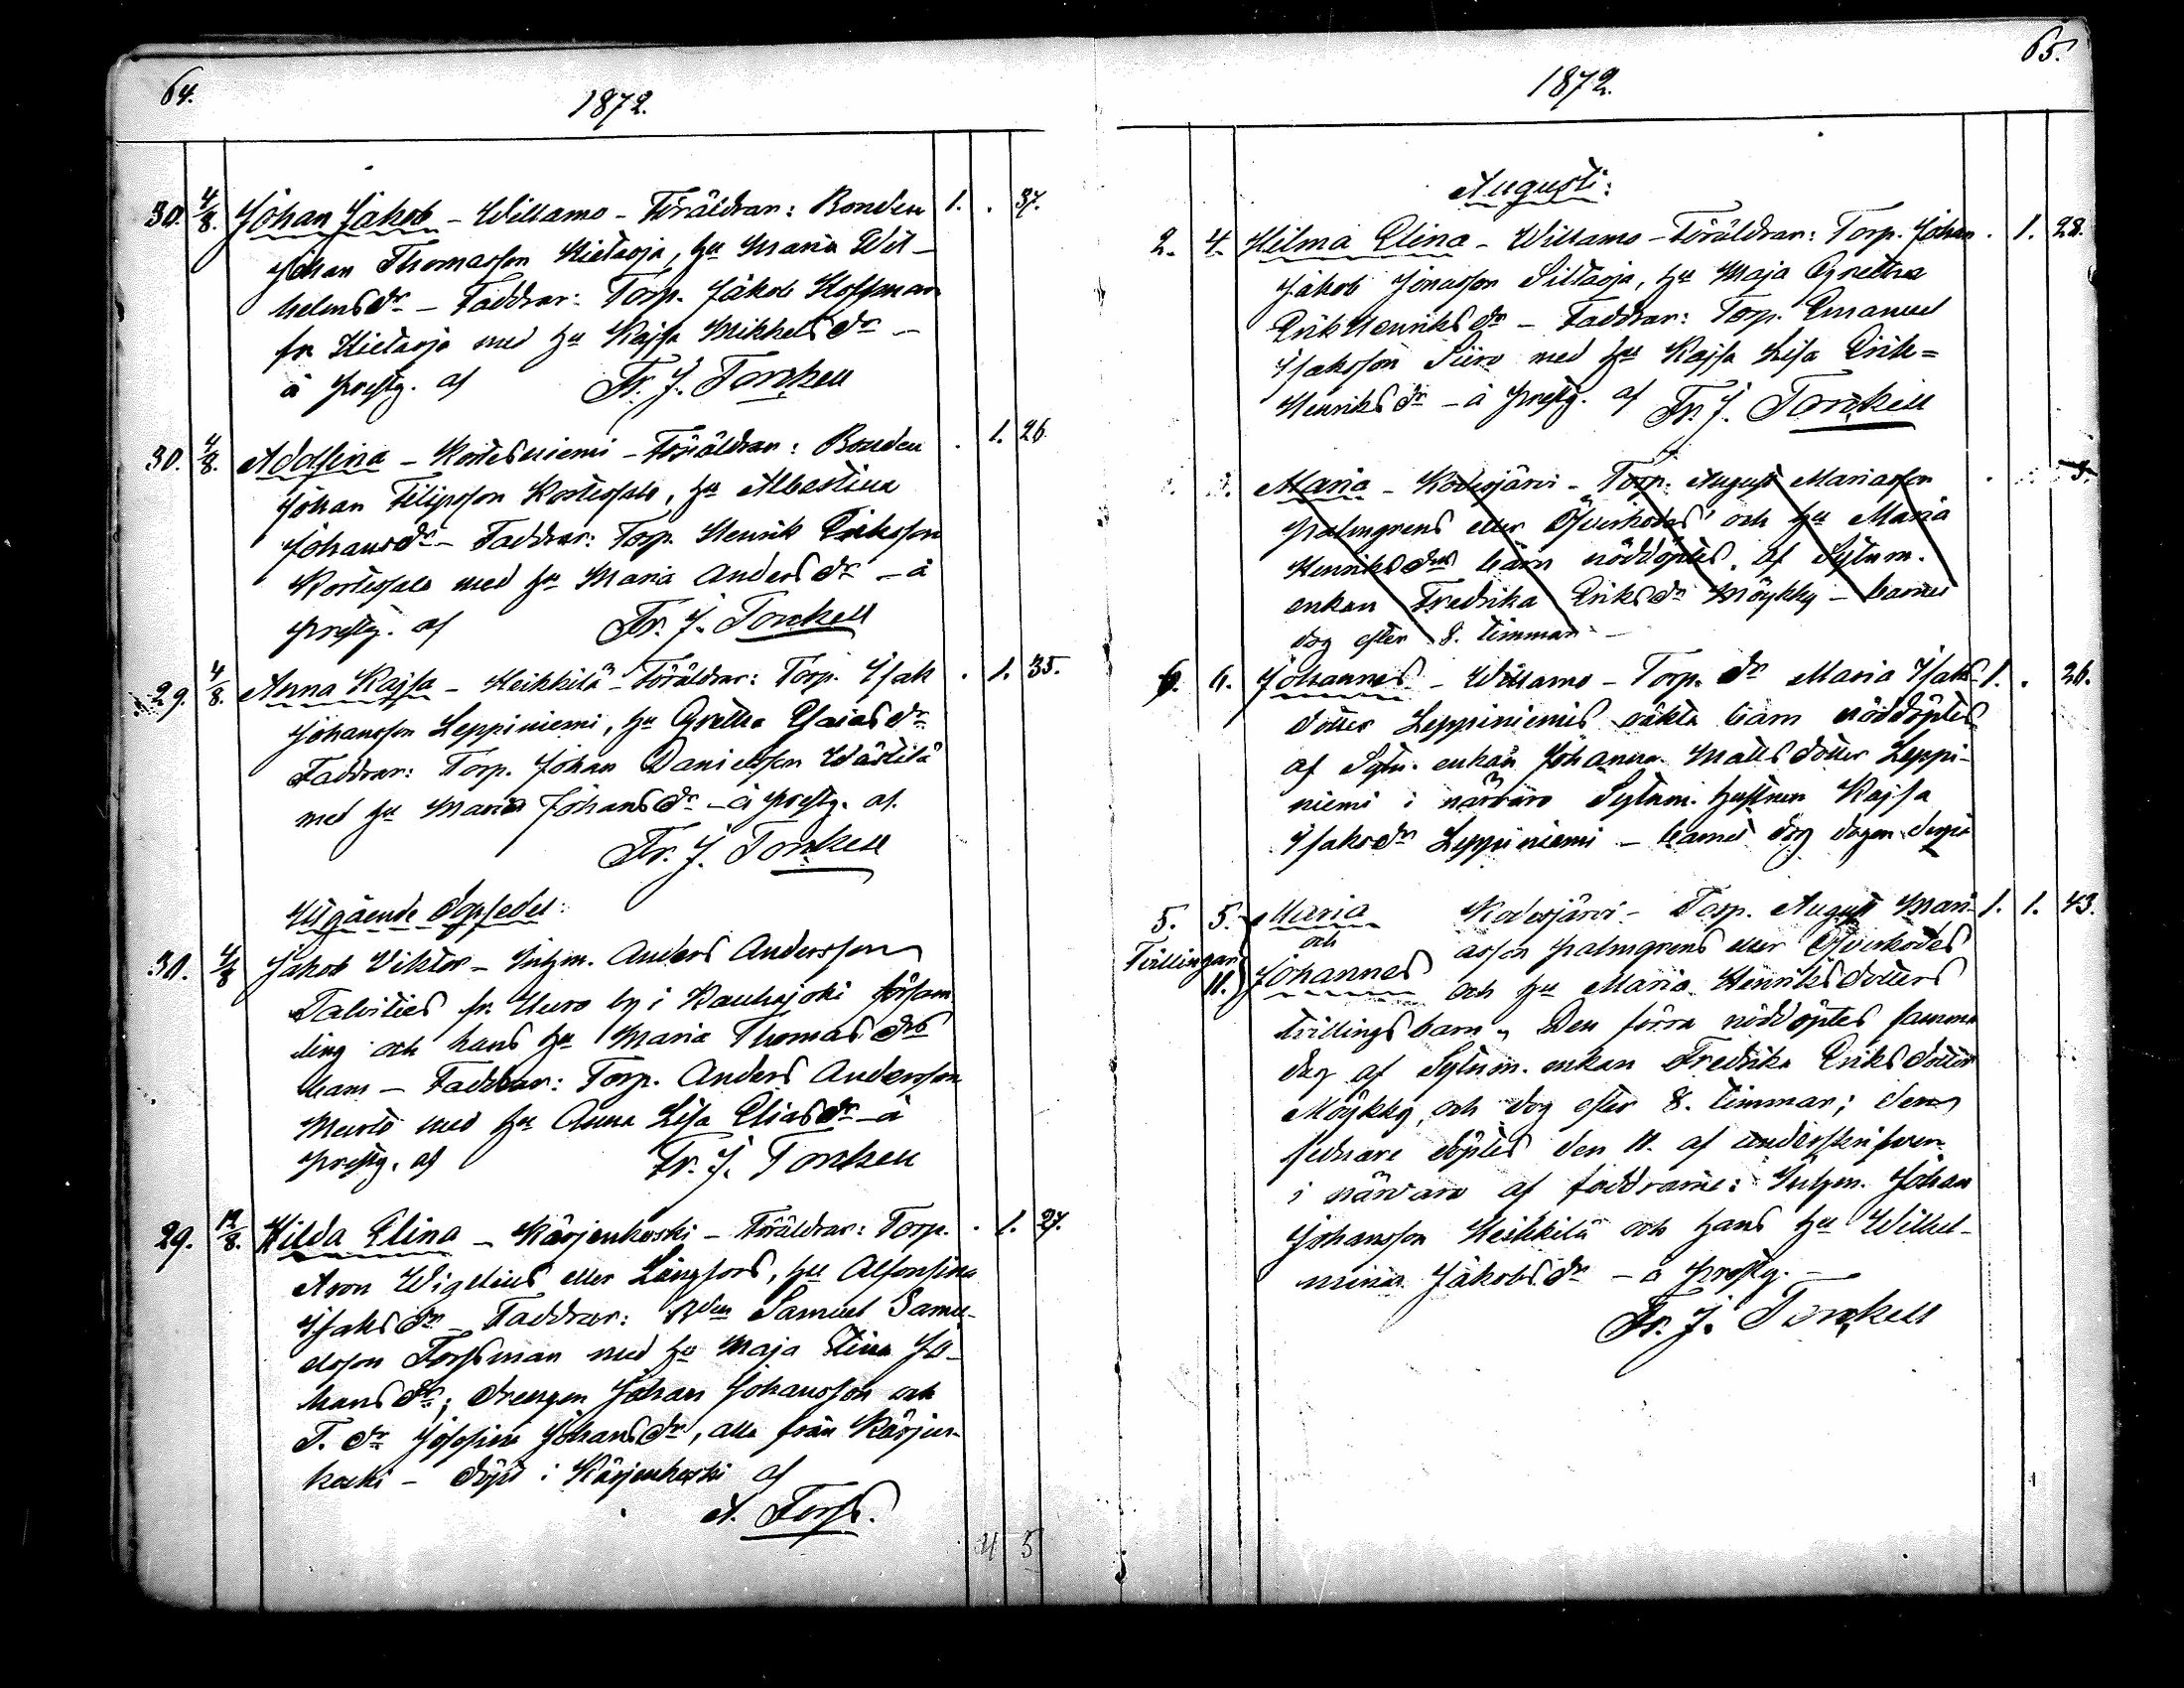 64.
1872.
30. 4/8. Johan Jakob - Willamo - Föräldrar: Bonden 1. . 37.
Johan Thomasson Kietarja, hu Maria Wil-
helmsdr - Faddrar: Torp. Jakob Hoffman
fr Kietarja med hu Kajsa Mikkelsdr -
å prestg. af Fr. J. Torckell
30. 4/8. Adolfina - Kortesniemi - Föräldrar: Bonden . 1. 26.
Johan Filipsson Kortessalo, hu Albertina
Johansdr - Faddrar: Torp. Henrik Eriksson
Kortessalo med hu Maria Andersdr - å
prestg. af Fr. J. Torckell
29. 4/8. Anna Kajsa - Heikkilä - Föräldrar: Torp. Isak . 1. 35.
Johansson Leppiniemi, hu Gretha Esaiasdr
Faddrar: Torp. Johan Danielsson Wästilä
med hu Maria Johansdr - å prestg. af
Fr. J. Torckell
Utgående dopsedel:
30. 4/8 Jakob Viktor - Inhm. Anders Andersson
Talvities fr. Uuro by i Kauhajoki församl
ling och hans hu Maria Thomasdrs
barn - Faddrar: Torp. Anders Andersson
Murto med hu Anna Lisa Eliasdr - å
prestg. af Fr. J. Torckell
29. 12/8. Hilda Elina - Kärjenkoski - Föräldrar: Torp. . 1. 27.
Aron Wigelius eller Långfors, hu Alfonsina
Isaksdr - Faddrar: Bden Samuel Samu-
elsson Forsman med hu Maja Stina Jo-
hansdr; drengen Johan Johansson och
T. dr Josefina Johansdr, alla från Kärjen-
koski - döpt i Kärjenkoski af
A. Forss.
4 5
65.
1872.
Augusti:
2. 4. Hilma Elina - Willamo - Föräldrar: Torp. Johan . 1. 28.
Jakob Jonasson Siltarja, hu Maja Gretha
Erik Henriksdr - Faddrar: Torp. Emanuel
Isaksson Siiro med hu Kajsa Lisa Erik=
Henriksdr - å prestg. af Fr. J. Torckell
Maria - Kodesjärvi - Torp. August Mariasson
Palmgrens eller Öfverkodes' och hu Maria
Henriksdrs barn nöddöptes, af Sytnm.
enkan Fredrika Eriksdr Möykky - barnet
dog efter 8. timmar -
6. 6. Johannes - Willamo - Torp. dr Maria Isaks- 1. . 26.
dotter Leppiniemis oäkta barn nöddöptes
af Sytn. enkan Johanna Mattsdotter Leppi-
niemi i närvaro Sytnm. hustrun Kajsa
Isaksdr Leppiniemi - barnet dog dagen derpå
5. 5. Maria Kodesjärvi - Torp. August Mari- 1. 1. 43.
och asson Palmgrens eller Öfverkodes
Tvillingar 11. Johannes och hu Maria Henriksdotters
tvillingsbarn, Den förra nöddöptes samma
dag af Sytnm. enkan Fredrika Eriksdotter
Möykky, och dog efter 8. timmar; den
sednare döptes den 11. af undersken
i närvaro af faddrarne: Inhm. Johan
Johansson Heikkilä och hans hu Wilhel-
mina Jakobsdr - å prestg. -
Fr. J. Torckell